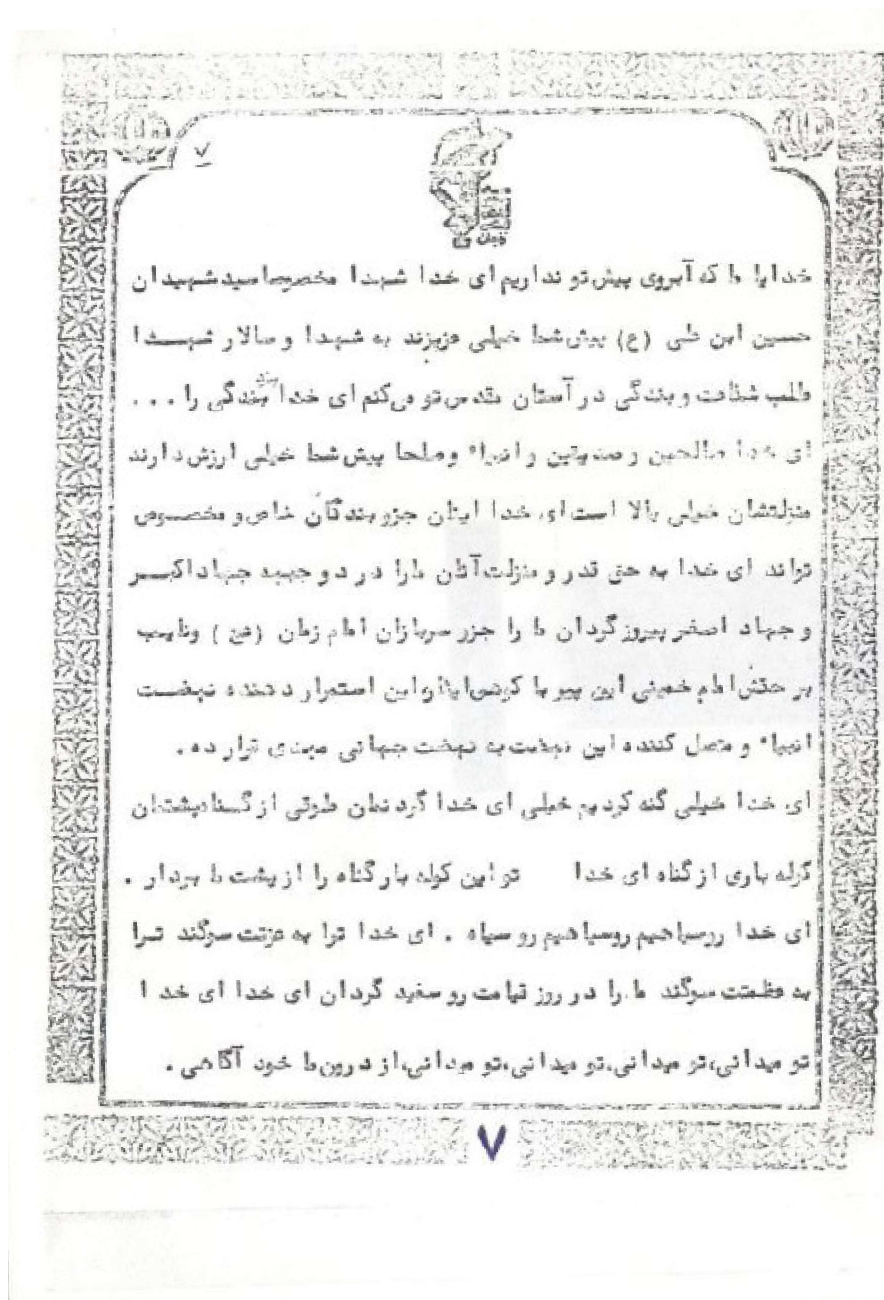 ۷
خدایا ما که آبروی پیش تو نداریم ای خدا شهدا مخصوصا سید شهیدان
حسین ابن علی (ع) پیش شما خیلی عزیزند به شهدا و سالار شهدا
طلب شفاعت و بندگی در آستان مقدس تو می‌کنم ای خدا بندگی را ...
ای خدا صالحین و صدیقین و انبیاء و صلحا پیش شما خیلی ارزش دارند
منزلتشان خیلی بالا است ای خدا اینان جزو بندگان خاص و مخصوص
تواند ای خدا به حق قدر و منزلت آنان ما را در دو جبهه جهاد اکبر
و جهاد اصغر پیروز گردان ما را جزر سربازان امام زمان (عج) و نایب
بر حقش امام خمینی این پیر این استمرار دهنده نهضت
انبیاء و متصل کننده این نهضت به نهضت جهانی مهدی قرار ده.
ای خدا خیلی گنه کردیم خیلی ای خدا گردنمان طوقی از گناه پشتمان
کوله باری از گناه ای خدا تو این کوله بار گناه را از پشت ما بردار.
ای خدا روسیاهیم روسیاهیم رو سیاه. ای خدا ترا به عزتت سوگند ترا
به عظمتت سوگند ما را در روز قیامت رو سفید گردان ای خدا ای خدا
تو میدانی، تو میدانی، تو میدانی، تو میدانی، از درون ما خود آگاهی.
۷